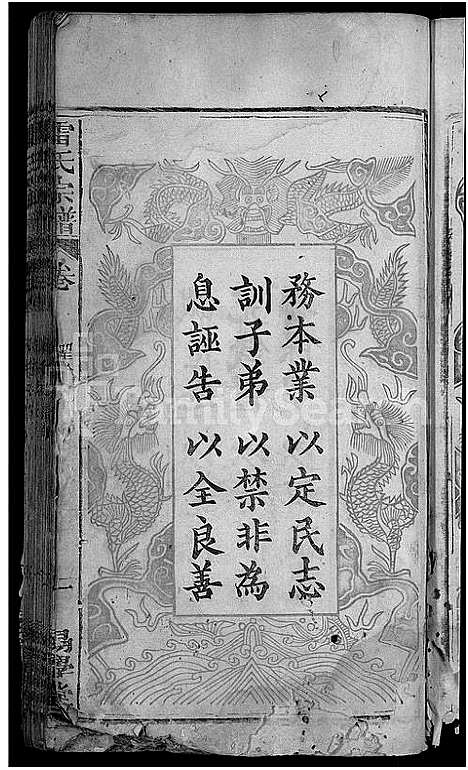 務本業以定民志
訓子弟以禁非為
息誣告以全良善
雷氏宗譜
卷
FamilySearch